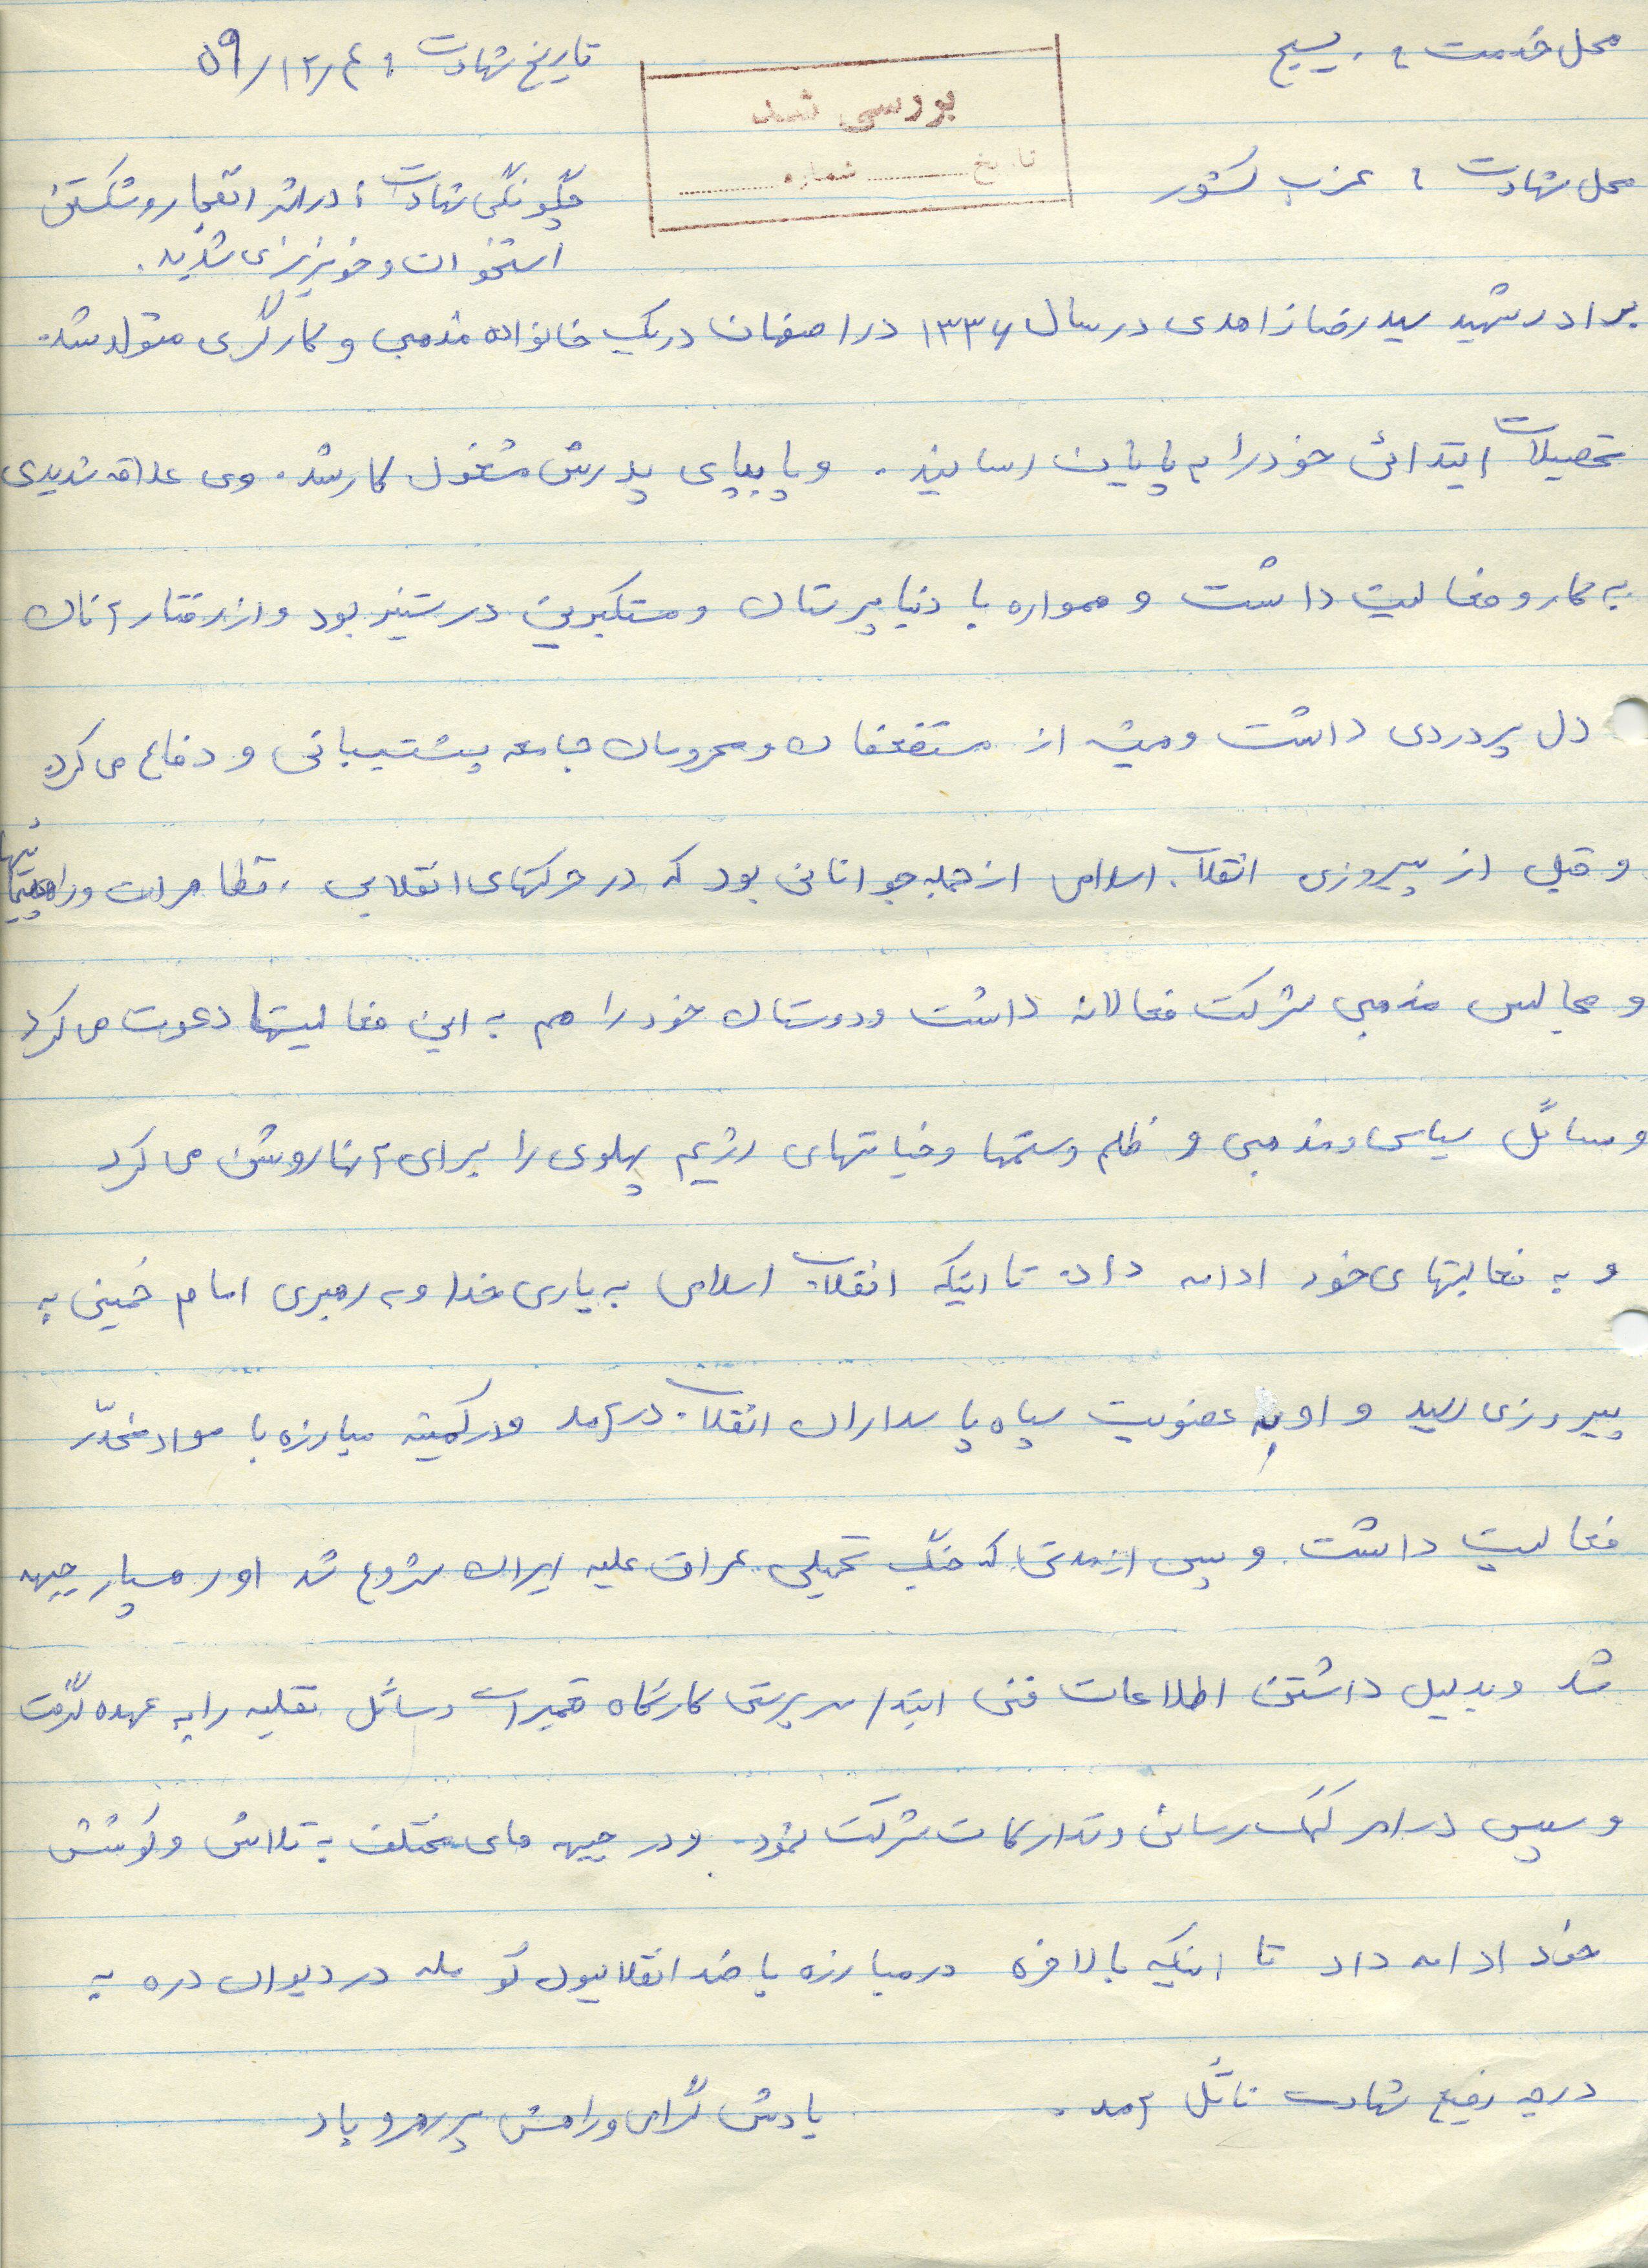 محل خدمت : بسیج
تاریخ شهادت : ۵۹/۱۲/۴
بررسی شد
تاریخ ............ شماره ............
محل شهادت : غرب کشور
چگونگی شهادت : در اثر انفجار و شکستن
استخوان و خونریزی شدید .
برادر شهید سید رضا زاهدی در سال ۱۳۳۶ در اصفهان در یک خانواده مذهبی و کارگری متولد شد .
تحصیلات ابتدائی خود را به پایان رسانید . و پابپای پدرش مشغول کار شد . وی علاقه شدیدی
به کار و فعالیت داشت و همواره با دنیا پرستان و مستکبرین در ستیز بود و از رفتار آنان
دل پر دردی داشت و همیشه از مستضعفان و محرومان جامعه پشتیبانی و دفاع می کرد
و قبل از پیروزی انقلاب اسلامی از جمله جوانانی بود که در حرکتهای انقلابی ، تظاهرات و راهپیمائیها
و مجالس مذهبی شرکت فعالانه داشت و دوستان خود را هم به این فعالیتها دعوت می کرد
و مسائل سیاسی و مذهبی و ظلم و ستمها و خیانتهای رژیم پهلوی را برای آنها روشن می کرد
و به فعالیتهای خود ادامه داد تا اینکه انقلاب اسلامی به یاری خدا و به رهبری امام خمینی به
پیروزی رسید و او به عضویت سپاه پاسداران انقلاب درآمد و در کمیته مبارزه با مواد مخدّر
فعالیت داشت . و پس از مدتی که جنگ تحمیلی عراق علیه ایران شروع شد او رهسپار جبهه
شد و بدلیل داشتن اطلاعات فنی ابتدا سرپرستی کارگاه تعمیرات وسائل نقلیه را به عهده گرفت
و سپس در امر کمک رسانی و تدارکات شرکت نمود . و در جبهه های مختلف به تلاش و کوشش
خود ادامه داد تا اینکه بالاخره در مبارزه با ضد انقلابیون کومله در دیوان دره به
درجه رفیع شهادت نائل آمد .
یادش گرامی و راهش پر رهرو باد